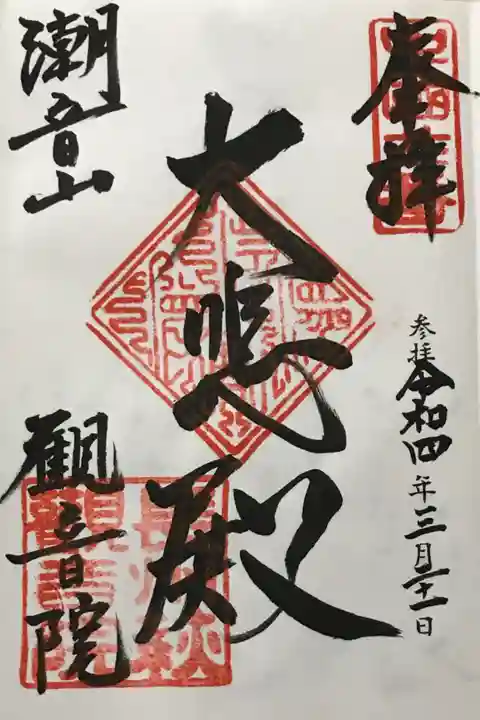 奉拝
参拝令和四年三月二十一日
大悲殿
潮音山
観音院